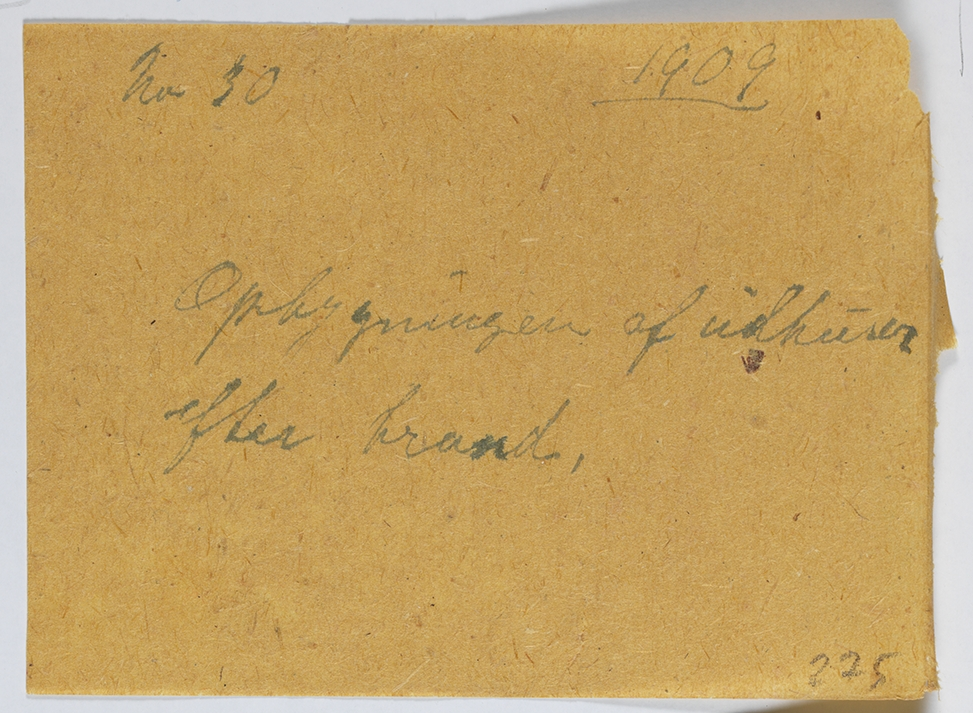 No 30 1909
Opbygningen af udhuser
efter brand,
225